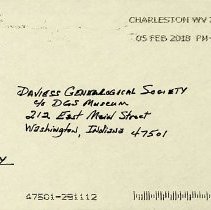 CHARLESTON WV
05 FEB 2018 PM
DAVIESS GENEALOGICAL SOCIETY
c/o DGS MUSEUM
212 East Main Street
Washington, Indiana 47501
47501-291112